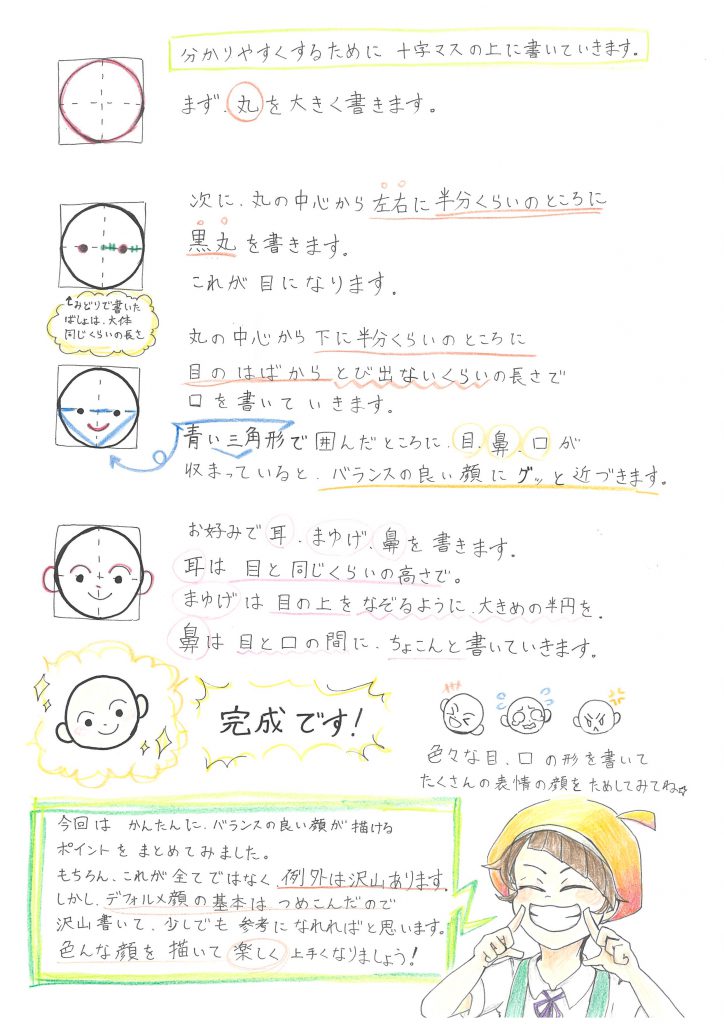 分かりやすくするために 十字マスの上に書いていきます。
まず、丸を大きく書きます。
次に、丸の中心から左右に半分くらいのところに
黒丸を書きます。
これが目になります。
↑みどりで書いた
ばしょは、大体
同じくらいの長さ
丸の中心から下に半分くらいのところに
目のはばからとび出ないくらいの長さで
口を書いていきます。
青い三角形で囲んだところに、目、鼻、口が
収まっていると、バランスの良い顔にグッと近づきます。
お好みで耳、まゆげ、鼻を書きます。
耳は目と同じくらいの高さで。
まゆげは目の上をなぞるように、大きめの半円を。
鼻は目と口の間に、ちょこんと書いていきます。
完成です!
色々な目、口の形を書いて
たくさんの表情の顔をためしてみてね☆
今回は かんたんに、バランスの良い顔が描ける
ポイントをまとめてみました。
もちろん、これが全てではなく例外は沢山あります。
しかし、デフォルメ顔の基本はつめこんだので
沢山書いて、少しでも参考になれればと思います。
色んな顔を描いて楽しく上手くなりましょう!